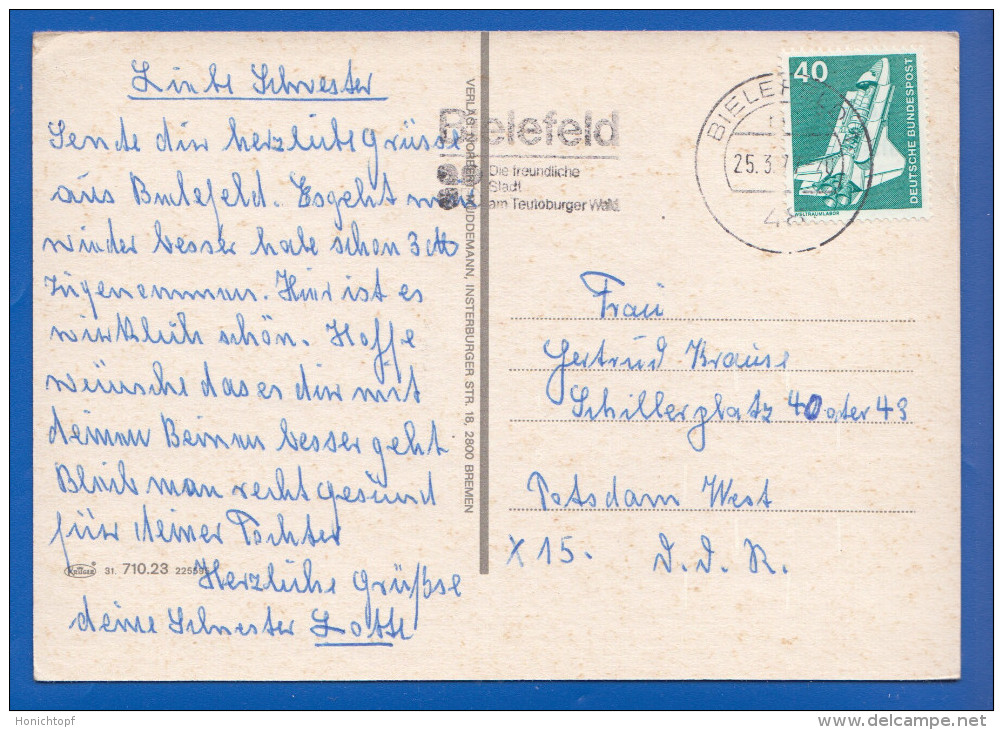 Liebe Schwester
Sende dir herzlibe grüsse
aus Bielefeld. Es geht mir
wieder besser habe schon 3 ℔
zugenommen. Hier ist es
wirklich schön. Hoffe
wünsche das es dir mit
deinen Beinen besser geht
Bleib man recht gesund
für deiner Tochter
Herzliche grüßse
deine Schwester Lotte
VERLAG NORBERT MÜDDEMANN, INSTERBURGER STR. 18, 2800 BREMEN
KRÜGER 31. 710.23
Bielefeld
Die freundliche
Stadt
am Teutoburger Wald
BIELEFELD
25.3.7
48
40
DEUTSCHE BUNDESPOST
WELTRAUMLABOR
Frau
Gertrud Krause
Schillerplatz 40 oder 43
Potsdam West
X 15. D.D.R.
Honichtopf
www.delcampe.net